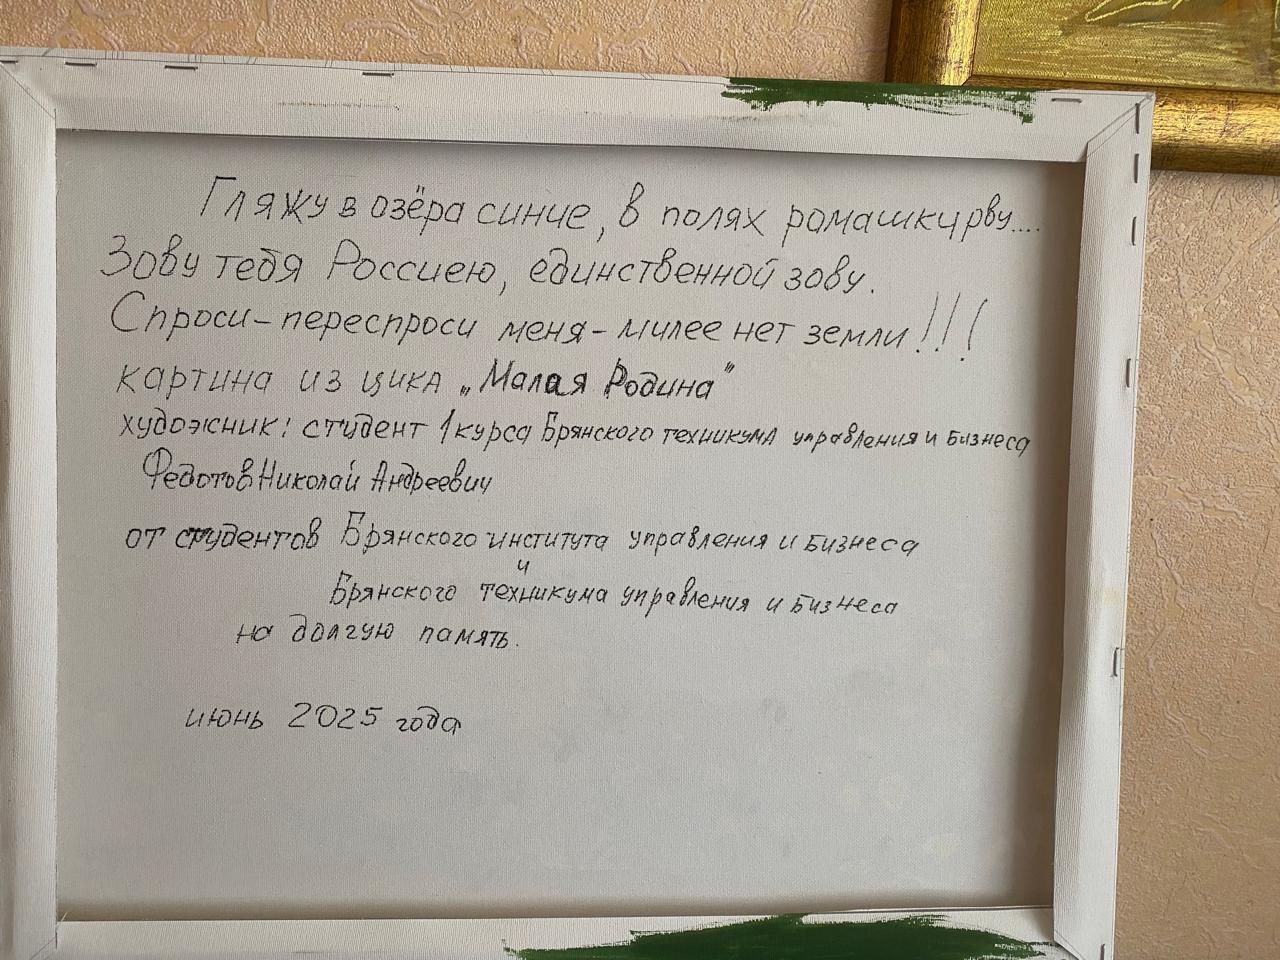 Гляжу в озёра синие, в полях ромашки рву....
Зову тебя Россиею, единственной зову.
Спроси-переспроси меня - милее нет земли!!!
картина из цика „Малая Родина"
художник: студент 1 курса Брянского техникума управления и бизнеса
Федотов Николай Андреевич
от студентов Брянского института управления и бизнеса
и
Брянского техникума управления и бизнеса
на долгую память.
июнь 2025 года